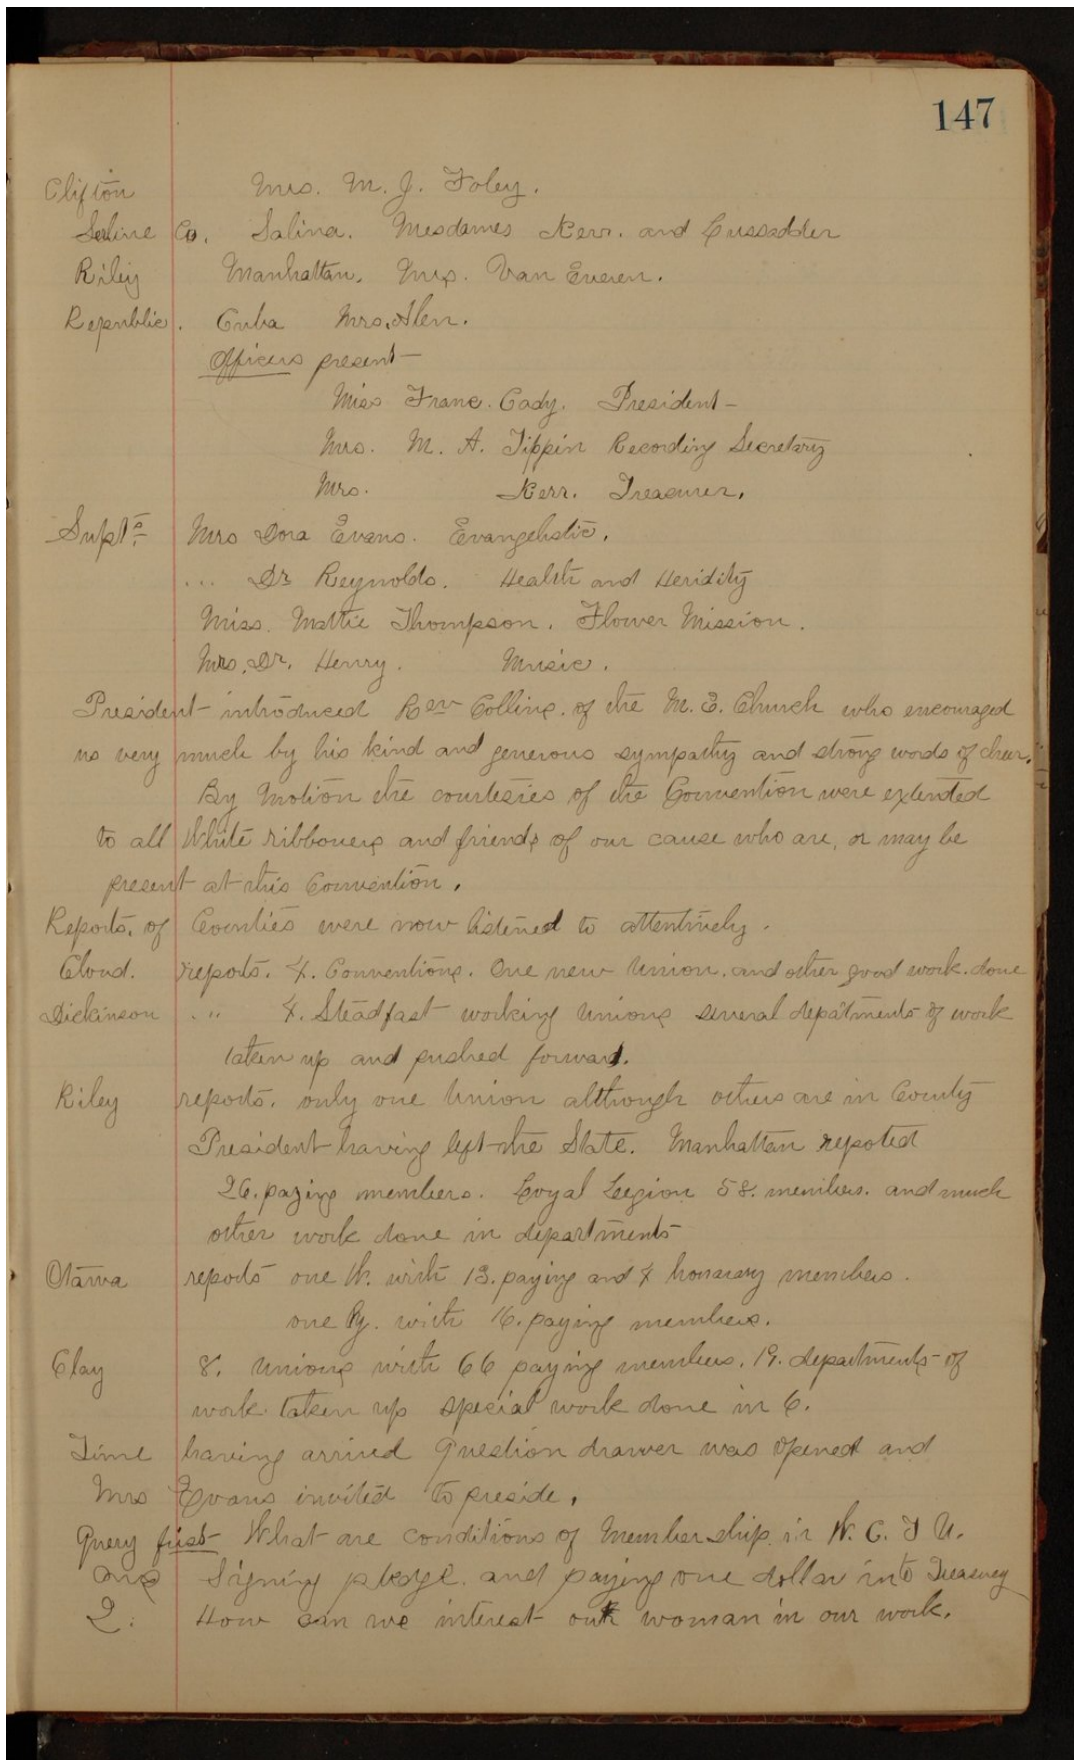 147
Clifton Mrs. M. J. Foley.
Saline Co. Salina. Mesdames Kerr. and
Riley Manhattan. Mrs. Van Everen.
Republic. Cuba Mrs. Alen.
Officers present-
Miss Franc. Cady. President-
Mrs. M. A. Tippin Recording Secretary
Mrs. Kerr. Treasurer.
Supts. Mrs Dora Evans. Evangelistic.
... Dr Reynolds. Health and Heridity
Miss. Mattie Thompson. Flower Mission.
Mrs. Dr. Henry. Music.
President introduced Rev Collins. of the M. E. Church who encouraged
us very much by his kind and generous sympathy and strong words of cheer.
By Motion the courtesies of the Convention were extended
to all White ribboners and friends of our cause who are, or may be
present at this Convention.
Reports. of Counties were now listened to attentively.
Cloud. reports. 4. Conventions. One new Union. and other good work. done
Dickinson " 4. Steadfast working Unions several depatments of work
taken up and pushed forward.
Riley reports. only one Union although others are in County
President having left the State. Manhattan repoted
26. paying members. Loyal Legion 58. members. and much
other work done in departments
Otawa reports one W. with 13. paying and 4 honarary members.
one Y. with 16. paying members.
Clay 8. Unions with 66 paying members. 19. departments of
work taken up special work done in 6.
Time having arrived Question drawer was opened and
Mrs Evans invited to preside.
Query first What are conditions of Member ship in W. C. T U.
Ans Signing pledge. and paying one dollar into Treasury
2. How can we interest our woman in our work.